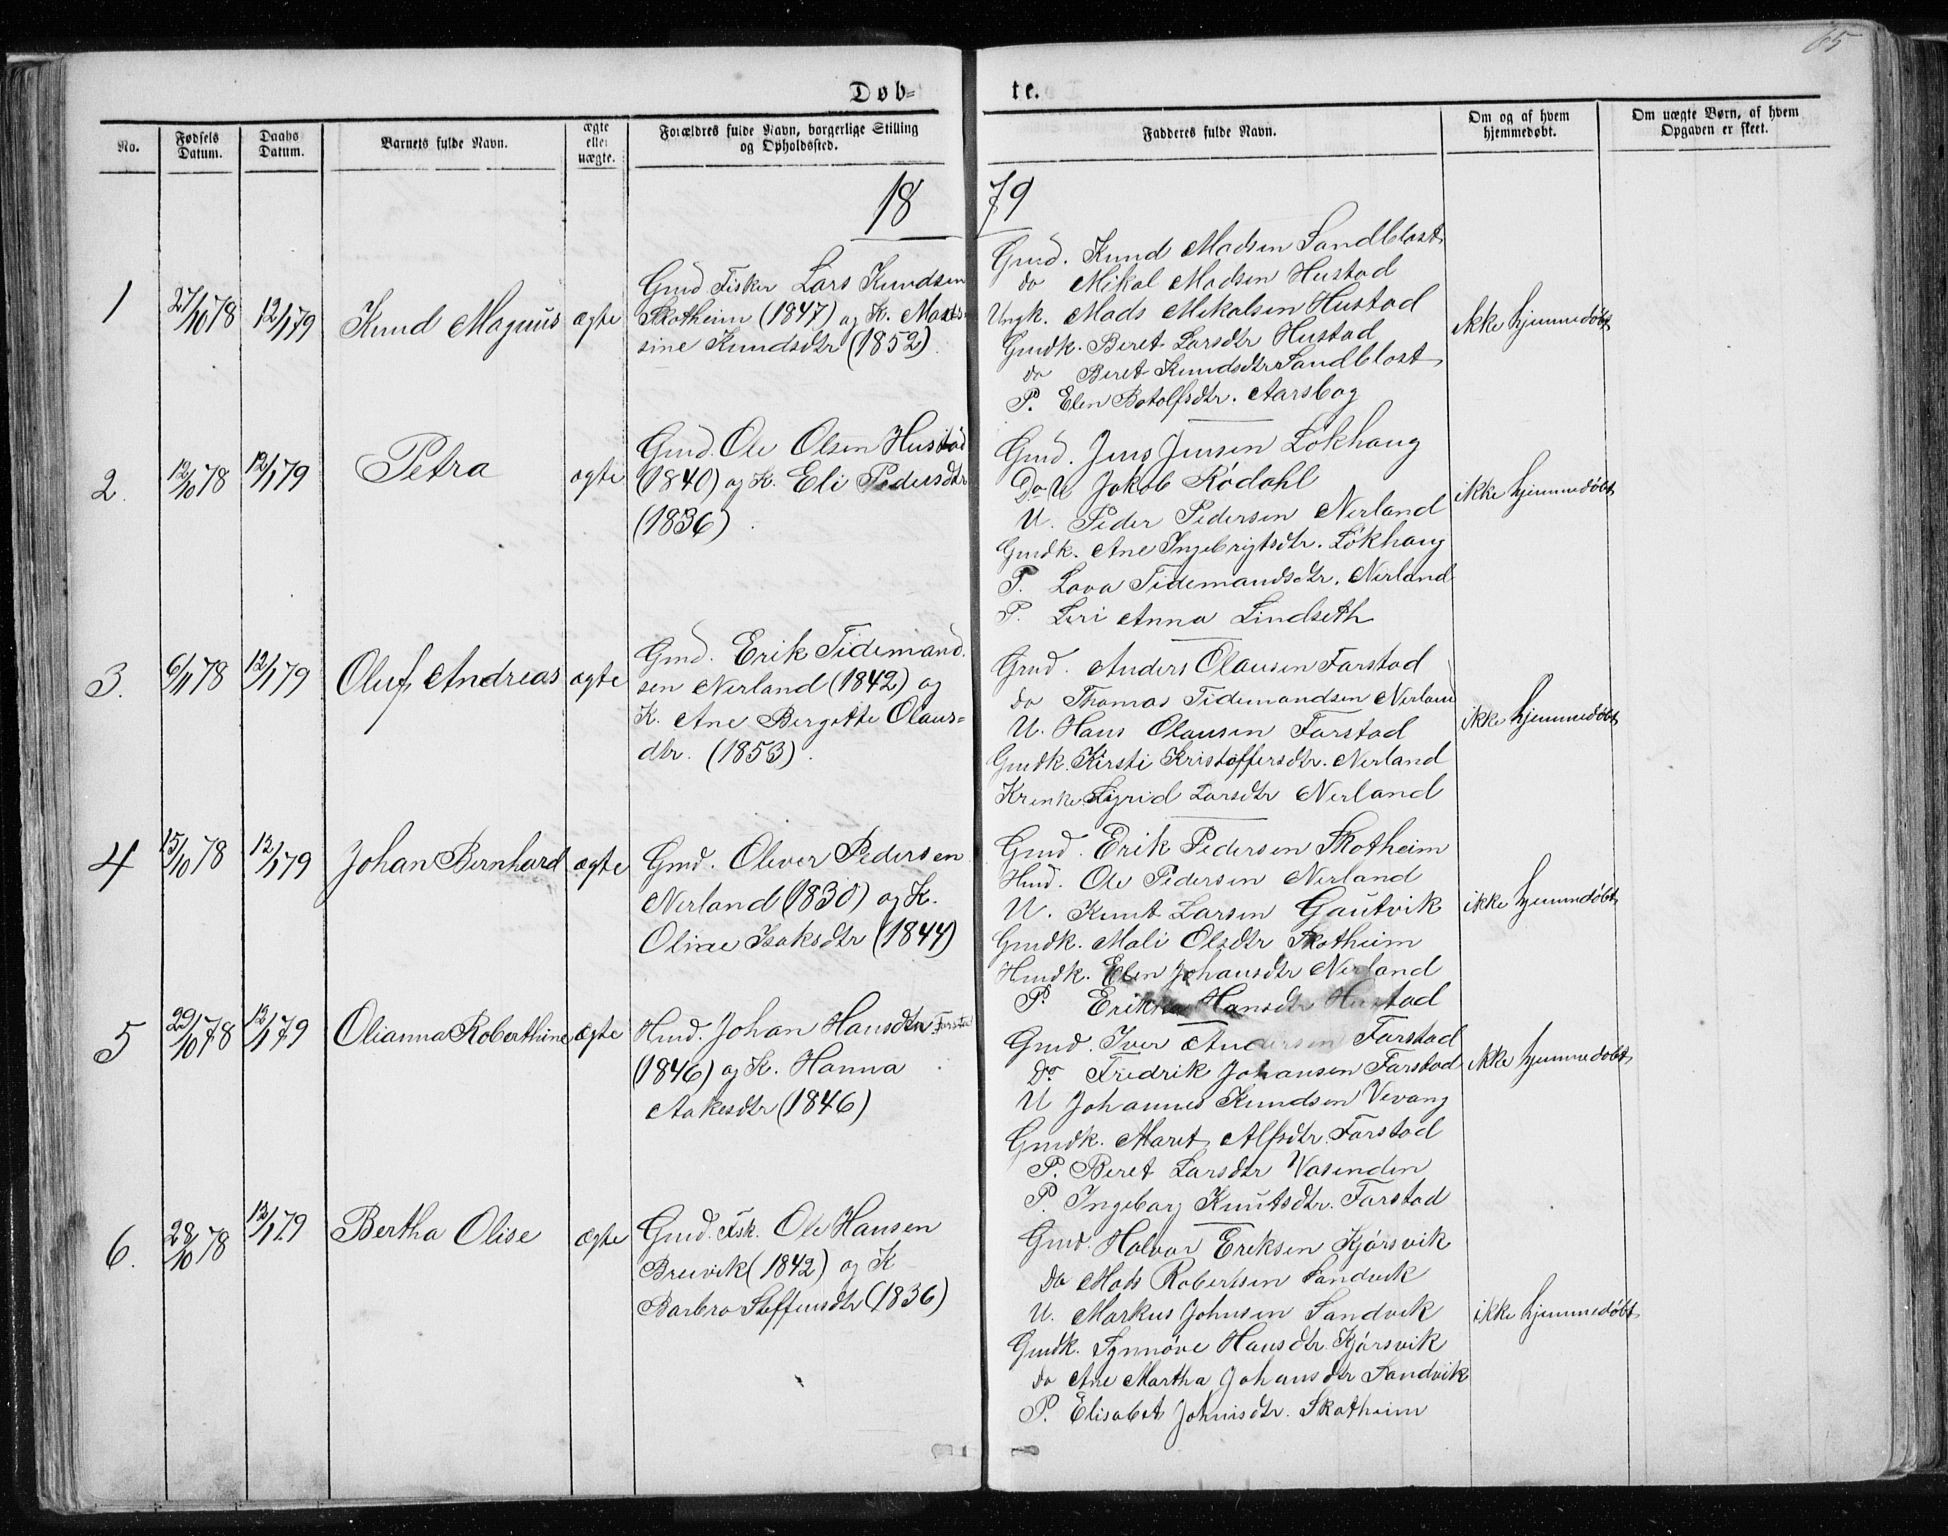 65
Døb-
te.
No.
Fødsels Datum.
Daabs Datum.
Barnets fulde Navn.
ægte eller uægte.
Forældres fulde Navn, borgerlige Stilling og Opholdssted.
Fadderes fulde Navn.
Om og af hvem hjemmedøbt.
Om uægte Børn, af hvem Opgaven er skeet.
18 79
1
27/10 78
12/1 79
Knud Magnus
ægte
Gmd Fisker Lars Knudsen
Skotheim (1847) og K. Mads-
sine Knudsdtr (1852).
Gmd. Knud Madsen Sandblost
do Mikal Madsen Hustad
Ungk. Mads Mikalsen Hustad
Gmdk. Beret Larsdtr Hustad
do Beret Knudsdtr Sandblost
P. Elen Botolfsdtr. Aarsbog
ikke hjemmedøbt
2.
12/10 78
12/1 79
Petra
ægte
Gmd. Ole Olsen Hustad
(1840) og K. Eli Pedersdtr
(1836).
Gmd. Jens Jensen Løkhaug
Do U Jakob Rødahl
U. Peder Pedersen Nerland
Gmdk. Ane Ingebrigtsdtr. Løkhaug
P. Lava Tidemandsdtr. Nerland
P. Siri Anna Lindseth
ikke hjemmedøbt
3.
6/11 78
12/1 79
Oluf Andreas
ægte
Gmd. Erik Tidemand-
sen Nerland (1842) og
K. Ane Bergitte Olaus-
dtr. (1853).
Gmd. Anders Olausen Farstad
do Thomas Tidemandsen Nerland
U. Hans Olausen Farstad
Gmdk. Kirsti Kristoffersdtr. Nerland
Krenke Sigrid Larsdtr Nerland
ikke hjemmedøbt
4
15/10 78
12/1 79
Johan Bernhard
ægte
Gmd. Oliver Pedersen
Nerland (1830) og K.
Oline Isaksdtr (1844)
Gmd. Erik Pedersen Skotheim
Hmd. Ole Pedersen Nerland
U. Knut Larsen Gautvik
Gmdk. Mali Olsdtr Skotheim
Hmdk. Elen Johansdtr Nerland
P. Erikka Hansdtr Hustad
ikke hjemmedøbt
5
29/10 78
12/1 79
Olianna Roberthine
ægte
Hmd. Johan Hansdtr Farsta
(1846) og K. Hanna
Aakesdtr (1846)
Gmd. Iver Andersen Farstad
Do Fredrik Johansen Farstad
U Johannes Knudsen Vevang
Gmdk. Maret Alfsdtr. Farstad
P. Beret Larsdtr Vasenden
P. Ingeborg Knutsdtr. Farstad
ikke hjemmedøbt
6.
28/10 78
12/1 79
Bertha Olise
ægte
Gmd. Fsk. Ole Hansen
Breivik (1842) og K
Barbro Steffensdtr (1836)
Gmd. Halvor Eriksen Kjørsvik
do Mads Robertsen Sandvik
U. Markus Johnsen Sandvik
Gmdk. Synnøve Hansdtr. Kjørsvik
do Ane Martha Johansdtr Sandvik
P. Elisabet Johnisdtr. Skotheim
ikke hjemmedøbt